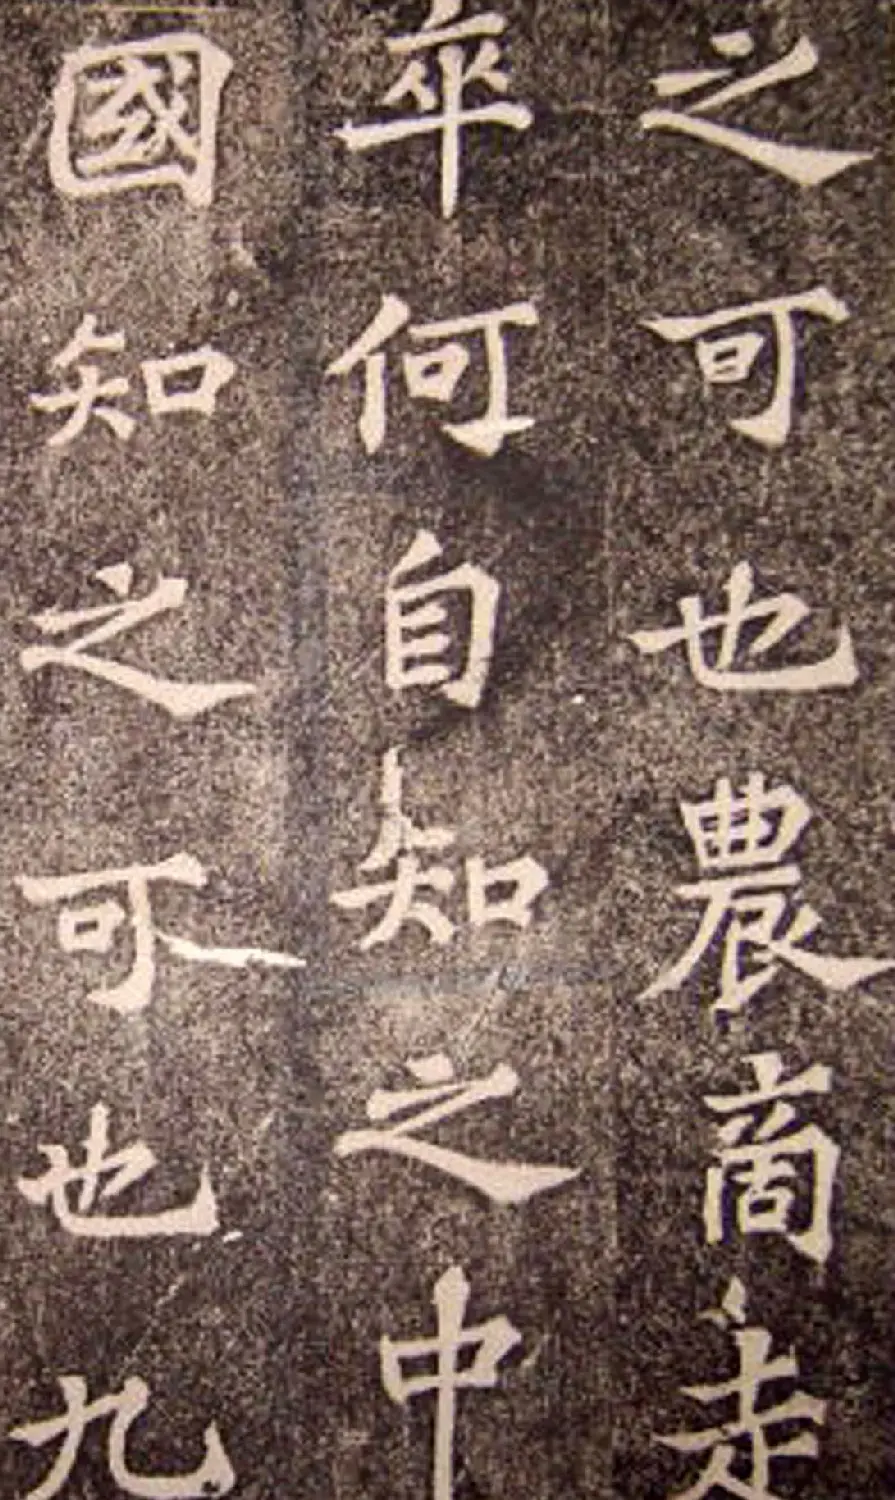 之可也農商走
卒何自知之中
國知之可也九